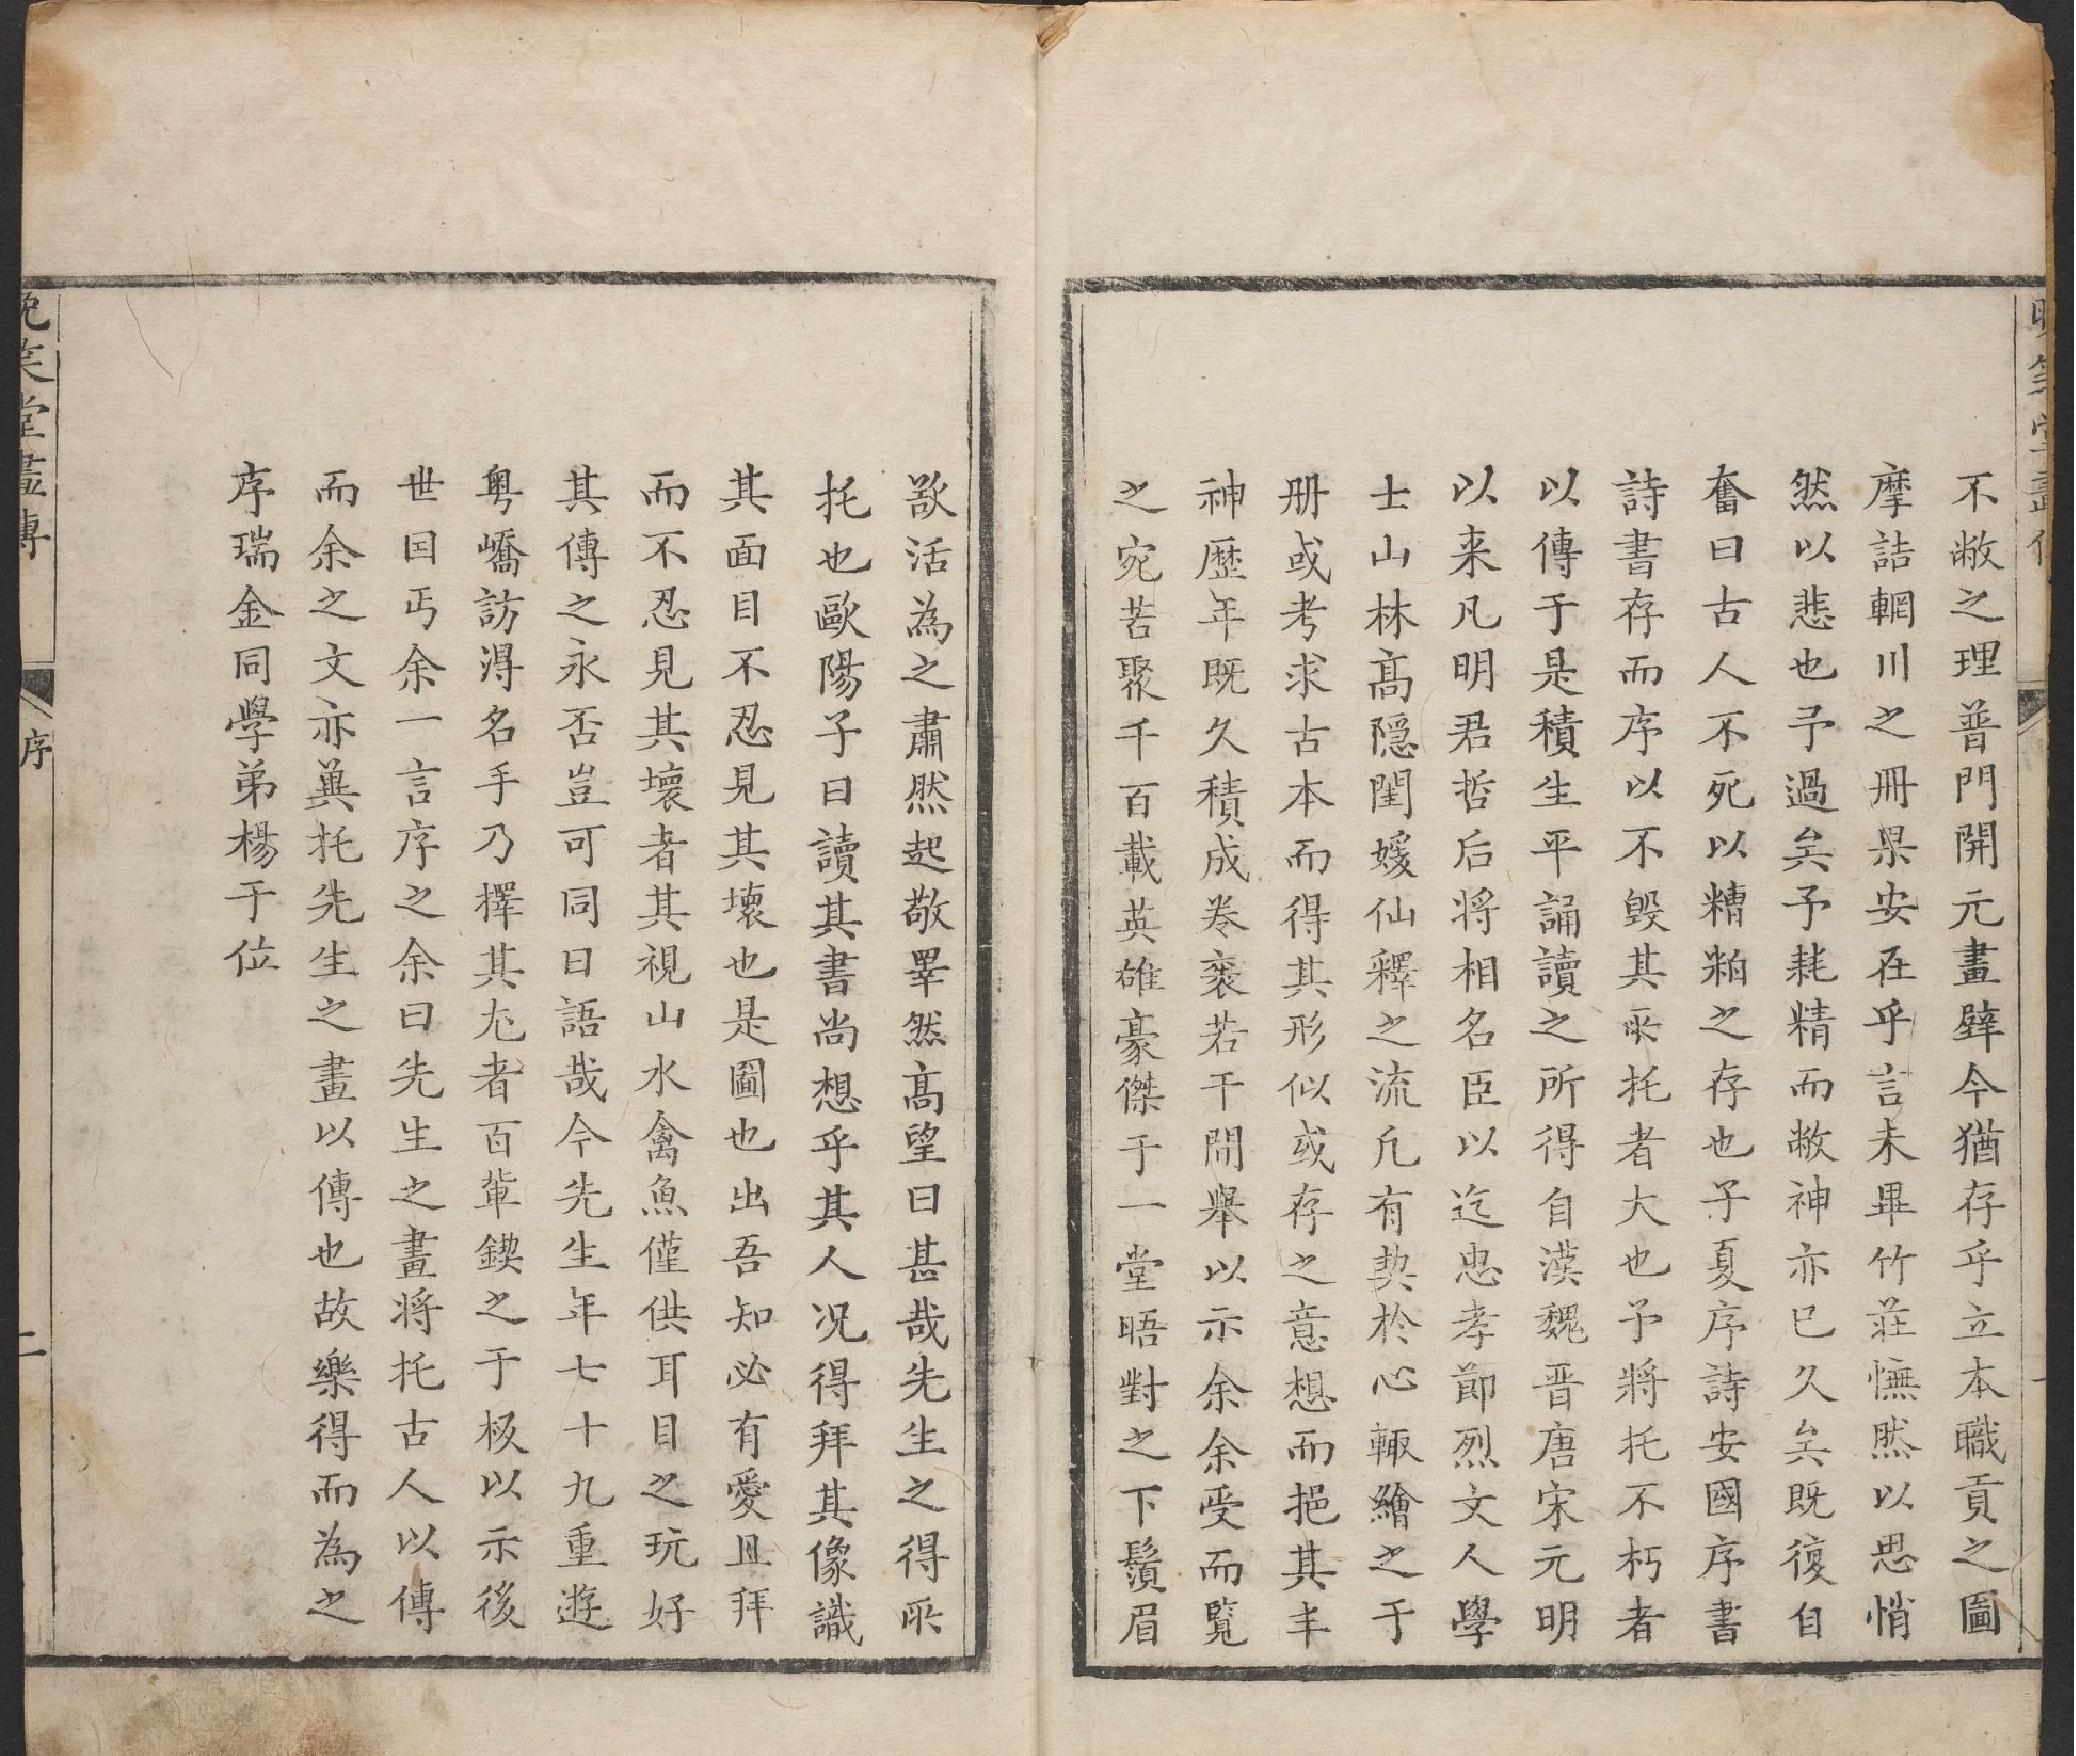 不敝之理普門開元畫壁今猶存乎立本職貢之圖
摩詰輞川之冊果安在乎言未畢竹莊憮然以思悄
然以悲也予過矣予耗精而敝神亦已久矣既復自
奮曰古人不死以糟粕之存也子夏序詩安國序書
詩書存而序以不毀其所托者大也予將托不朽者
以傳于是積生平誦讀之所得自漢魏晋唐宋元明
以来凡明君哲后將相名臣以迄忠孝節烈文人學
士山林高隱閨媛仙釋之流凡有契於心輙繪之于
册或考求古本而得其形似或存之意想而挹其丰
神歷年既久積成卷裘若干間舉以示余余受而覧
之宛若聚千百載英雄豪傑于一堂晤對之下鬚眉
欲活為之肅然起敬睪然高望曰甚哉先生之得所
托也歐陽子曰讀其書尚想乎其人况得拜其像識
其面目不忍見其壞也是圖也出吾知必有愛且拜
而不忍見其壞者其視山水禽魚僅供耳目之玩好
其傳之永否豈可同日語哉今先生年七十九重遊
粤嶠訪淂名手乃擇其尤者百軰鍥之于板以示後
世囙丐余一言序之余曰先生之畫將托古人以傳
而余之文亦兾托先生之畫以傳也故樂得而為之
序瑞金同學弟楊于位
晚笑堂畫傳
序
二